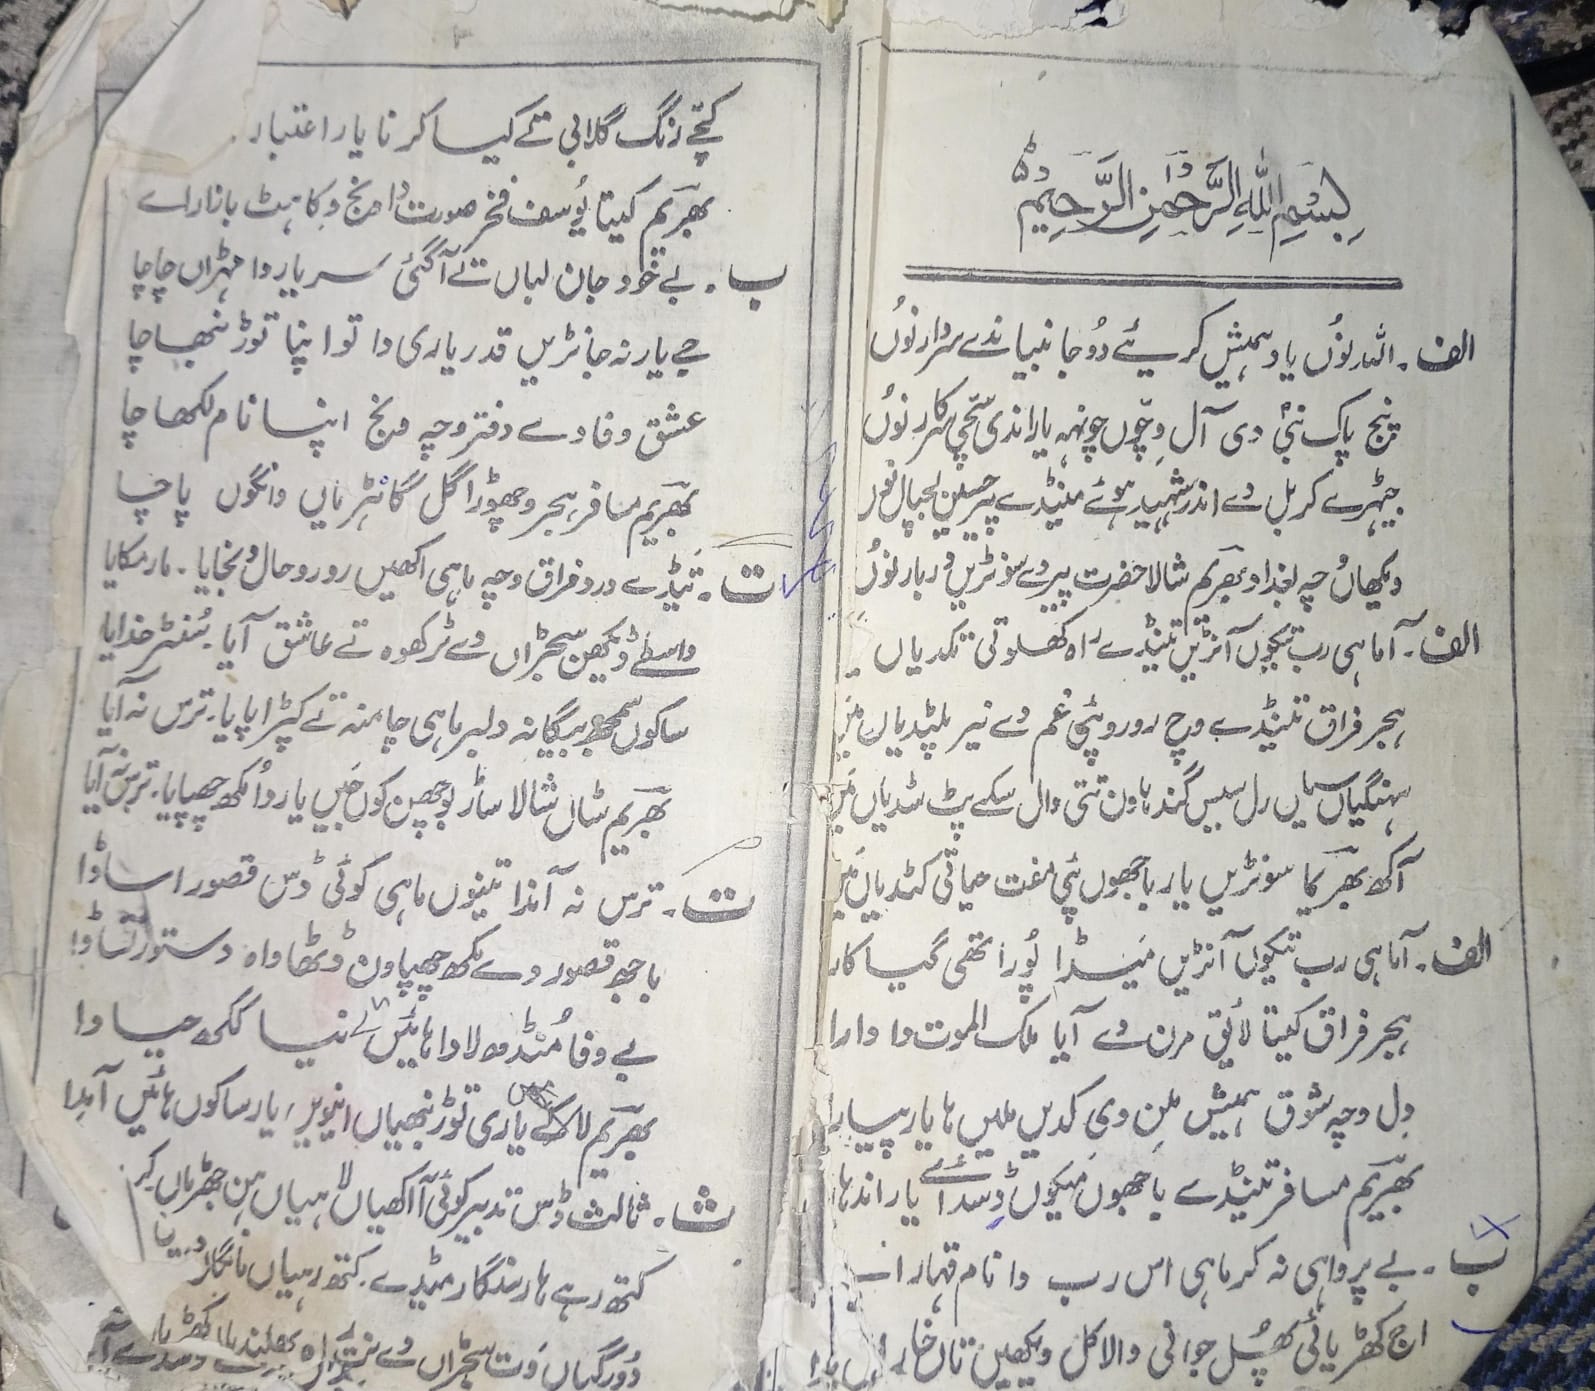 بِسْمِ اللّٰهِ الرَّحْمٰنِ الرَّحِيْمِ
الف۔ اللہ نوُں یاد ہمیش کریئے دُوجا نبیاندے سردار نوُں
پنج پاک نبیؐ دی آل وِچّوں چونہہ یاراندی سچّی سرکار نوُں
جیہڑے کربل دے اندر شہید ہوئے مینڈے پیر حسینؑ لجپال نوں
ویکھاں چہ بغداد بھریم شالا حضرت پیر دے سونڑیں دربار نوُں
الف۔ آ ماہی رب تیکوں آنڑیں تینڈے راہ کھلوتی تکدیاں
ہجر فراق تینڈے وچ رو رو پئی غم دے نیر پلٹدیاں میں
سہنگیاں سیاں رل سیس گنداون تتی وال سکے پٹ سٹدیاں میں
آکھ بھریما سونڑیں یار باجھوں پئی مفت حیاتی کٹدیاں میں
الف۔ آ ماہی رب تیکوں آنڑیں مینڈا پُورا تھی گیا کار
ہجر فراق کیتا لائق مرن دے آیا ملک الموت دا وارا
دِل وچہ شوق ہمیش مِلن دی کدیں ملیں ہا یار پیارا
بھریم مسافر تینڈے باجھوں میکوں ڈسدائے یار اندھا
ب۔ بے پرواہی نہ کر ماہی اس رب دا نام قہار اے
اج کھڑیائی پھُل جوانی والا کل ویکھیں تاں خار
کچّے رنگ گلابی تے کیسا کرنا یار اعتبار
بھریم کیتا یُوسف فخر صورت دا ونج وِکا ہٹ بازار اے
ب۔ بے خود جان لباں تے آگئی سر یار دا مہڑاں چا چا
جے یار نہ جانڑیں قدر یاری دا تو اپنا توڑ نبھا چا
عشق وفا دے دفتر وچہ ونج اپنا نام لکھا چا
بھریم مسافر ہجر وچھوڑا گل گانٹریاں وانگوں پا چا
ت۔ تینڈے درد فراق وچہ ماہی اکھیں رو رو حال ونجایا۔ مار مکایا
واسطے ڈیکھن سجڑاں دے ٹر کھوہ تے عاشق آیا۔ سُنڑ خدایا
ساکوں سمجھ بیگانہ دلبر ماہی چا منہ تے کپڑا پایا۔ ترس نہ آیا
بھریم شاں شالا ساڑ بوچھن کوں جَیں یار دا مُکھ چھپایا۔ ترس نہ آیا
ت۔ ترس نہ آندا تینوں ماہی کوئی ڈس قصور اساڈا
باجھ قصور دے مکھ چھپاون ڈٹھا واہ دستور تساڈا
بے وفا مُنڈھ لا دا ہائیں لے نیا ککھ حیا دا
بھریم لا کے یاری توڑ نبھیاں انیویں یار ساکوں ہائیں آہدا
ث۔ ثالث ڈس تدبیر کوئی آ اکھیاں لا ہیاں ہن جھڑیاں کر
کتھ رہے ہار سنگار مینڈے۔ کتھ رہیاں
دُور گیاں وت سجڑاں دے